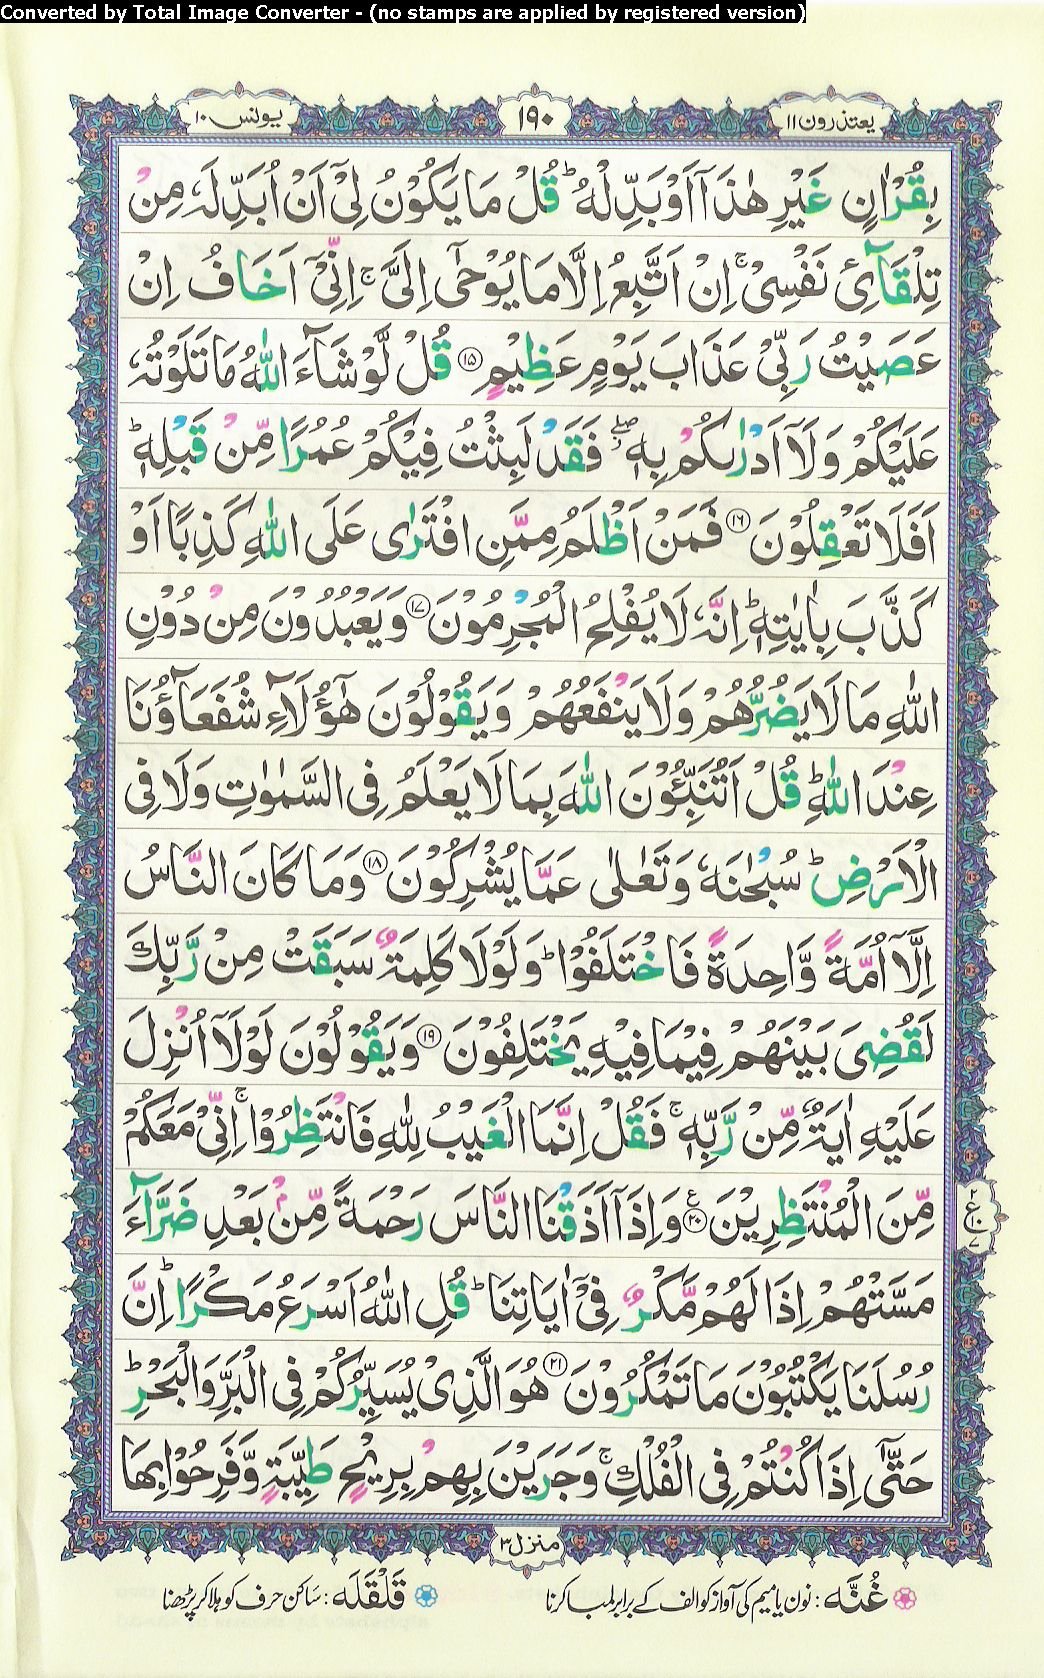 Converted by Total Image Converter - (no stamps are applied by registered version)
یعتذرون ۱۱
۱۹۰
یونس ۱۰
بِقُرْاٰنٍ غَیْرِ هٰذَاۤ اَوْ بَدِّلْهُ ؕ قُلْ مَا یَكُوْنُ لِیْۤ اَنْ اُبَدِّلَهٗ مِنْ
تِلْقَآئِ نَفْسِیْ ۚ اِنْ اَتَّبِعُ اِلَّا مَا یُوْحٰۤی اِلَیَّ ۚ اِنِّیْۤ اَخَافُ اِنْ
عَصَیْتُ رَبِّیْ عَذَابَ یَوْمٍ عَظِیْمٍ ۝۱۵ قُلْ لَّوْ شَآءَ اللّٰهُ مَا تَلَوْتُهٗ
عَلَیْكُمْ وَلَاۤ اَدْرٰىكُمْ بِهٖ ۖؗ فَقَدْ لَبِثْتُ فِیْكُمْ عُمُرًا مِّنْ قَبْلِهٖ ؕ
اَفَلَا تَعْقِلُوْنَ ۝۱۶ فَمَنْ اَظْلَمُ مِمَّنِ افْتَرٰی عَلَی اللّٰهِ كَذِبًا اَوْ
كَذَّبَ بِاٰیٰتِهٖ ؕ اِنَّهٗ لَا یُفْلِحُ الْمُجْرِمُوْنَ ۝۱۷ وَیَعْبُدُوْنَ مِنْ دُوْنِ
اللّٰهِ مَا لَا یَضُرُّهُمْ وَلَا یَنْفَعُهُمْ وَیَقُوْلُوْنَ هٰۤؤُلَآءِ شُفَعَآؤُنَا
عِنْدَ اللّٰهِ ؕ قُلْ اَتُنَبِّـُٔوْنَ اللّٰهَ بِمَا لَا یَعْلَمُ فِی السَّمٰوٰتِ وَلَا فِی
الْاَرْضِ ؕ سُبْحٰنَهٗ وَتَعٰلٰی عَمَّا یُشْرِكُوْنَ ۝۱۸ وَمَا كَانَ النَّاسُ
اِلَّاۤ اُمَّةً وَّاحِدَةً فَاخْتَلَفُوْا ؕ وَلَوْلَا كَلِمَةٌ سَبَقَتْ مِنْ رَّبِّكَ
لَقُضِیَ بَیْنَهُمْ فِیْمَا فِیْهِ یَخْتَلِفُوْنَ ۝۱۹ وَیَقُوْلُوْنَ لَوْلَاۤ اُنْزِلَ
عَلَیْهِ اٰیَةٌ مِّنْ رَّبِّهٖ ۚ فَقُلْ اِنَّمَا الْغَیْبُ لِلّٰهِ فَانْتَظِرُوْا ۚ اِنِّیْ مَعَكُمْ
مِّنَ الْمُنْتَظِرِیْنَ ۝۲۰ وَاِذَاۤ اَذَقْنَا النَّاسَ رَحْمَةً مِّنْۢ بَعْدِ ضَرَّآءَ
مَسَّتْهُمْ اِذَا لَهُمْ مَّكْرٌ فِیْۤ اٰیَاتِنَا ؕ قُلِ اللّٰهُ اَسْرَعُ مَكْرًا ؕ اِنَّ
رُسُلَنَا یَكْتُبُوْنَ مَا تَمْكُرُوْنَ ۝۲۱ هُوَ الَّذِیْ یُسَیِّرُكُمْ فِی الْبَرِّ وَالْبَحْرِ ؕ
حَتّٰۤی اِذَا كُنْتُمْ فِی الْفُلْكِ ۚ وَجَرَیْنَ بِهِمْ بِرِیْحٍ طَیِّبَةٍ وَّفَرِحُوْا بِهَا
۲ ع ۱۰ ۷
منزل ۳
غُنَّه: نون یا میم کی آواز کو الف کے برابر لمبا کرنا
قَلْقَلَه: ساکن حرف کو ہلا کر پڑھنا